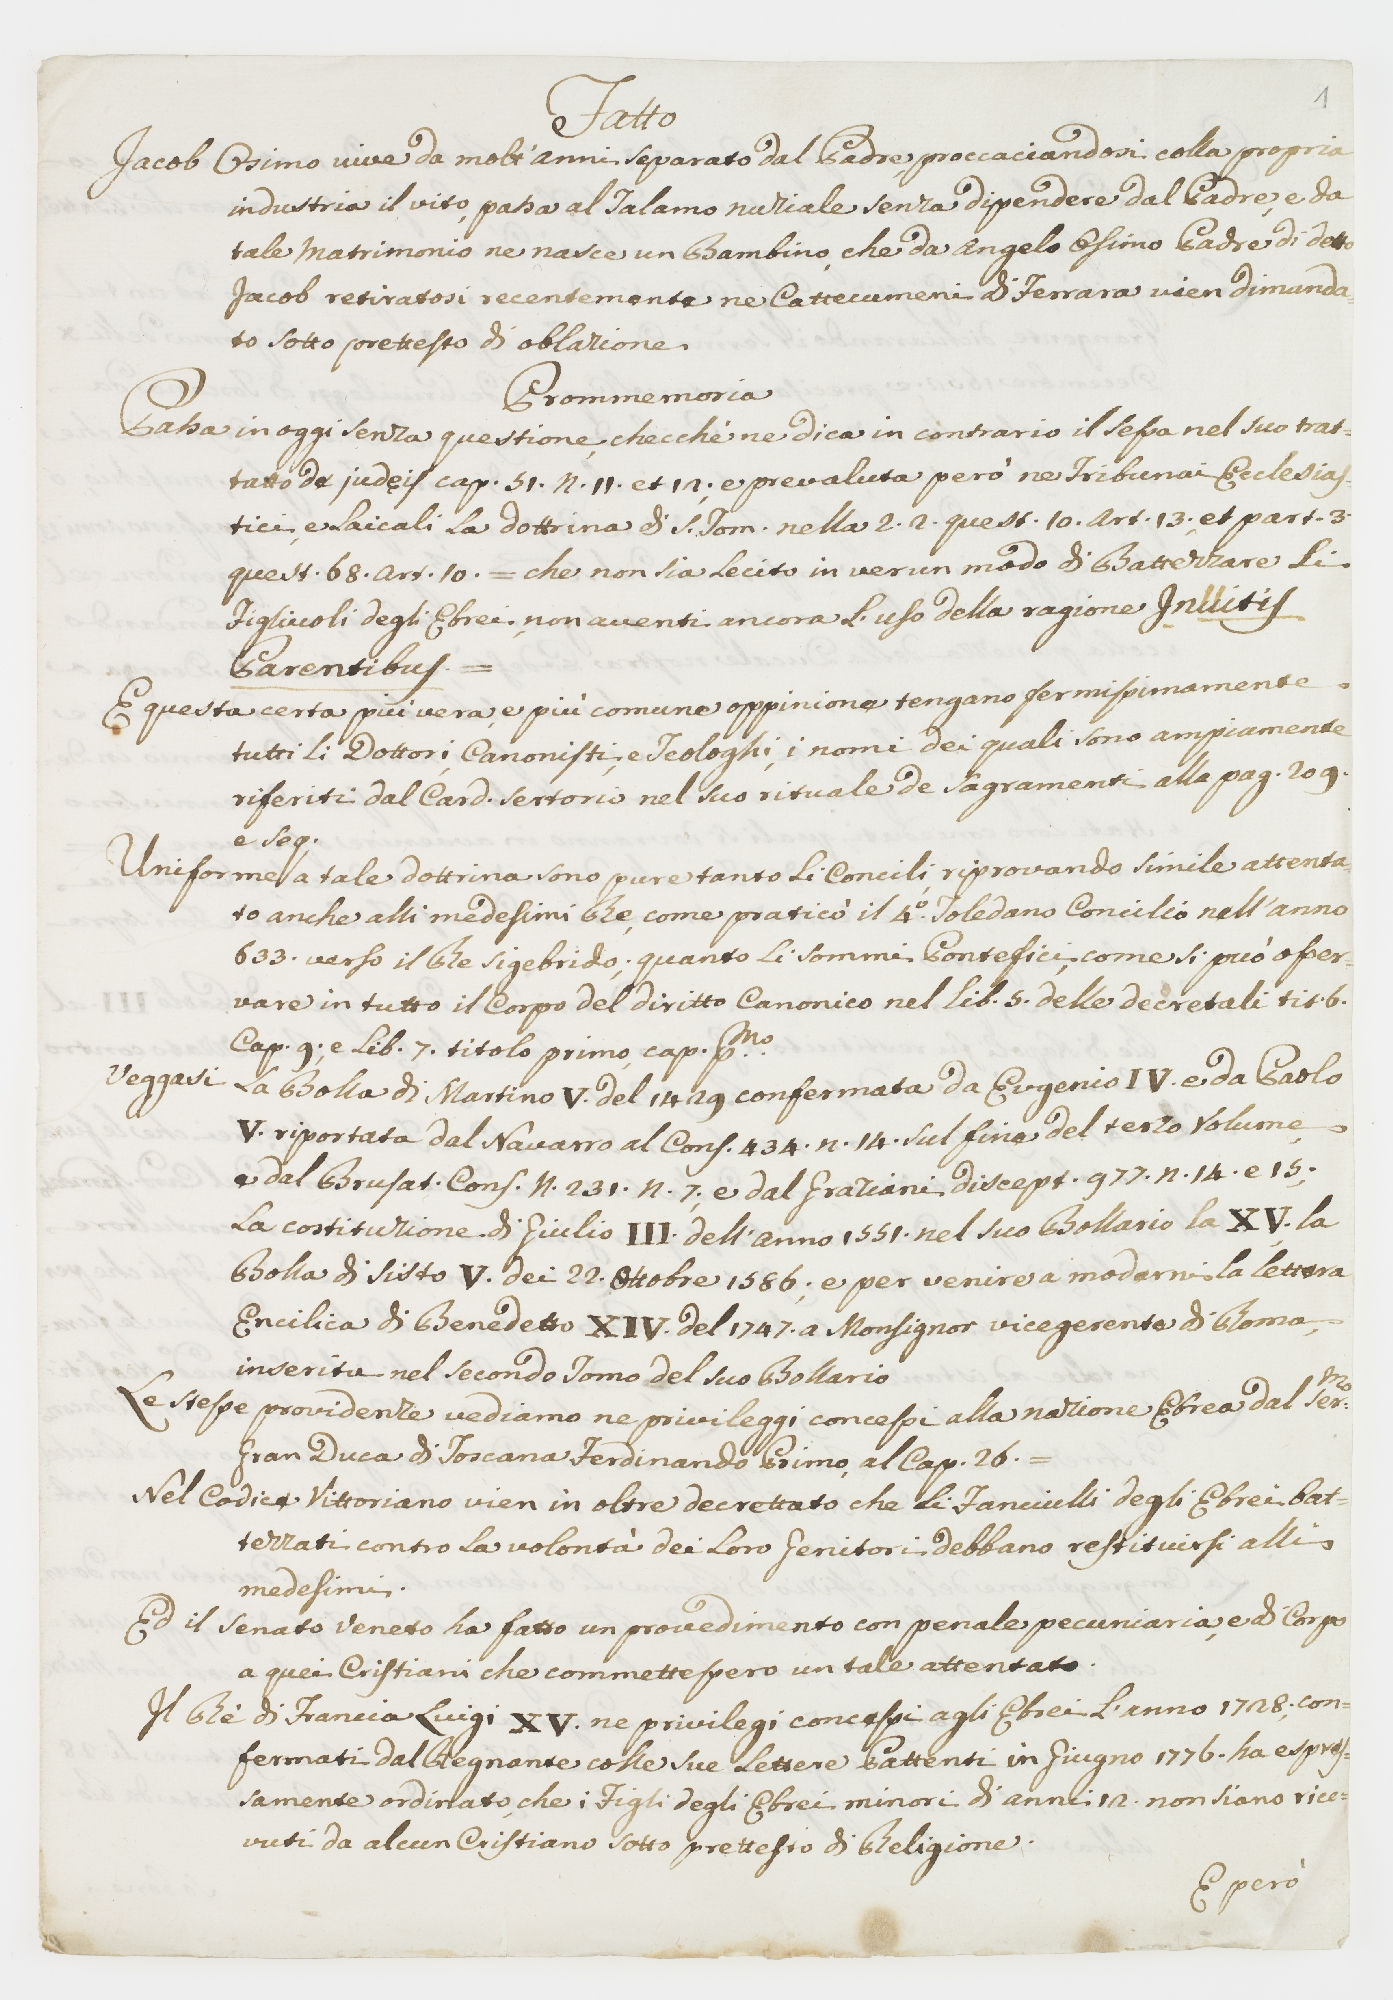 1
Fatto
Jacob Osimo vive da molt'anni separato dal Padre, proccaciandosi colla propria
industria il vito, passa al Talamo nuziale senza dipendere dal Padre, e da
tale Matrimonio ne nasce un Bambino, che da Angelo Osimo Padre di detto
Jacob retiratosi recentemente ne Cattecumeni di Ferrara vien dimanda=
to sotto prettesto di oblazione.
Prommemoria
Passa in oggi senza questione, checché ne dica in contrario il Sessa nel suo trat=
tatto de judeis cap. 51. N. 11. et 12; e prevaluta però ne Tribunai Ecclesias=
tici, e Laicali La dottrina di S. Tom. nella 2. 2. quest. 10. Art. 13; et part. 3.
quest. 68. Art. 10. = che non sia Lecito in verun modo di Battezzare Li
Figliuoli degli Ebrei, non aventi ancora L'uso della ragione Invitis
Parentibus. =
E questa certa piú vera, e più comune oppinione tengano fermissimamente
tutti Li Dottori, Canonisti, e Teologhi, i nomi dei quali sono ampiamente
riferiti dal Card. Sertorio nel suo rituale de Sagramenti alla pag. 209.
e seq.
Uniforme a tale dottrina sono pure tanto Li Concili, riprovando simile attenta=
to anche alli medesimi Rè, come praticò il 4.º Toledano Concilio nell'anno
633. verso il Rè Sigebrido; quanto Li Sommi Pontefici, come si può osser=
vare in tutto il Corpo del diritto Canonico nel lib. 5. delle decretali tit. 6.
Cap. 9; e Lib. 7. titolo primo, cap. p.mo
Veggasi La Bolla di Martino V. del 1429 confermata da Eugenio IV. e da Paolo
V. riportata dal Navarro al Cons. 434. n. 14. sul fine del terzo Volume,
e dal Brusat. Cons. N. 231. n. 7; e dal Graziani discept. 977. n. 14. e 15;
La costituzione di Giulio III. dell'anno 1551. nel suo Bollario la XV. la
Bolla di Sisto V. dei 22. Ottobre 1586; e per venire a moderni la lettera
Encilica di Benedetto XIV. del 1747. a Monsignor vicegerente di Roma,
inserita nel secondo Tomo del suo Bollario
Le stesse providenze vediamo ne privileggi concessi alla nazione Ebrea dal Ser.mo
Gran Duca di Toscana Ferdinando Primo, al Cap. 26. =
Nel Codice Vittoriano vien in oltre decrettato che Li Fanciulli degli Ebrei bat=
tezzati contro La volontà dei Loro Genitori debbano restituirsi alli
medesimi.
Ed il Senato Veneto ha fatto un provedimento con penale pecuniaria, e di Corpo
a quei Cristiani che commettessero un tale attentato.
Il Rè di Francia Luigi XV. ne privilegi concessi agli Ebrei L'anno 1728; con=
fermati dal Regnante colle sue Lettere Pattenti in Giugno 1776. ha espres=
samente ordinato, che i Figli degli Ebrei minori di anni 12. non siano rice=
vuti da alcun Cristiano sotto prettesto di Religione.
E però